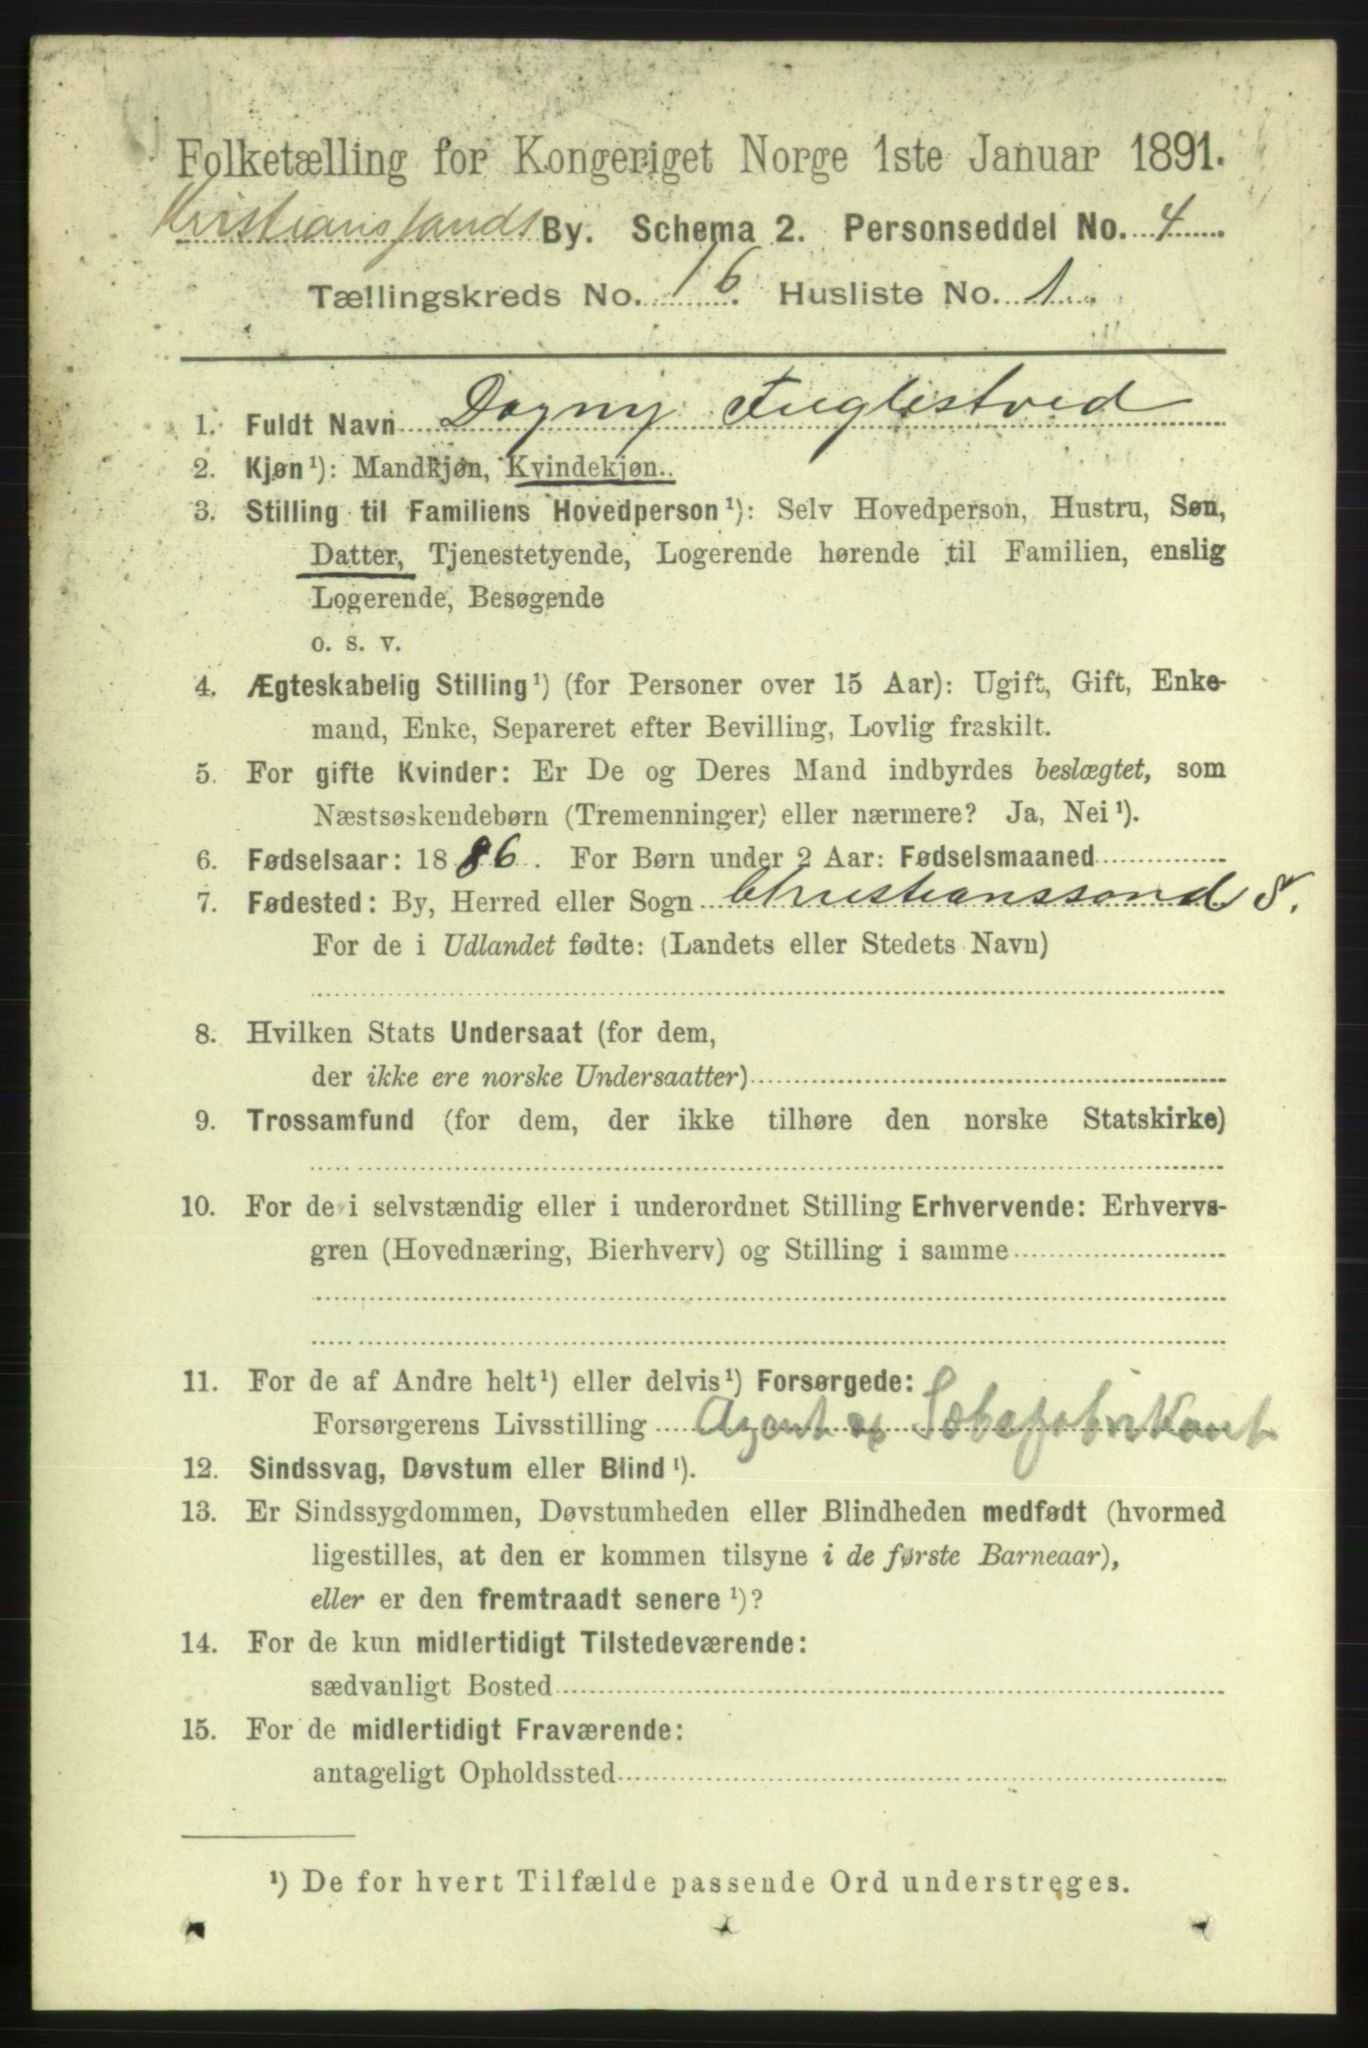 Folketælling for Kongeriget Norge 1ste Januar 1891.
Kristianssands By. Schema 2. Personseddel No. 4
Tællingskreds No. 16. Husliste No. 1
1. Fuldt Navn Dagny Fuglestved
2. Kjøn¹): Mandkjøn, Kvindekjøn.
3. Stilling til Familiens Hovedperson¹): Selv Hovedperson, Hustru, Søn,
Datter, Tjenestetyende, Logerende hørende til Familien, enslig
Logerende, Besøgende
o. s. v.
4. Ægteskabelig Stilling¹) (for Personer over 15 Aar): Ugift, Gift, Enke-
mand, Enke, Separeret efter Bevilling, Lovlig fraskilt.
5. For gifte Kvinder: Er De og Deres Mand indbyrdes beslægtet, som
Næstsøskendebørn (Tremenninger) eller nærmere? Ja, Nei¹).
6. Fødselsaar: 1886. For Børn under 2 Aar: Fødselsmaaned
7. Fødested: By, Herred eller Sogn Christianssand S.
For de i Udlandet fødte: (Landets eller Stedets Navn)
8. Hvilken Stats Undersaat (for dem,
der ikke ere norske Undersaatter)
9. Trossamfund (for dem, der ikke tilhøre den norske Statskirke)
10. For de i selvstændig eller i underordnet Stilling Erhvervende: Erhvervs-
gren (Hovednæring, Bierhverv) og Stilling i samme
11. For de af Andre helt¹) eller delvis¹) Forsørgede:
Forsørgerens Livsstilling Agent og Sæbefabrikant
12. Sindssvag, Døvstum eller Blind¹).
13. Er Sindssygdommen, Døvstumheden eller Blindheden medfødt (hvormed
ligestilles, at den er kommen tilsyne i de første Barneaar),
eller er den fremtraadt senere¹)?
14. For de kun midlertidigt Tilstedeværende:
sædvanligt Bosted
15. For de midlertidigt Fraværende:
antageligt Opholdssted
¹) De for hvert Tilfælde passende Ord understreges.